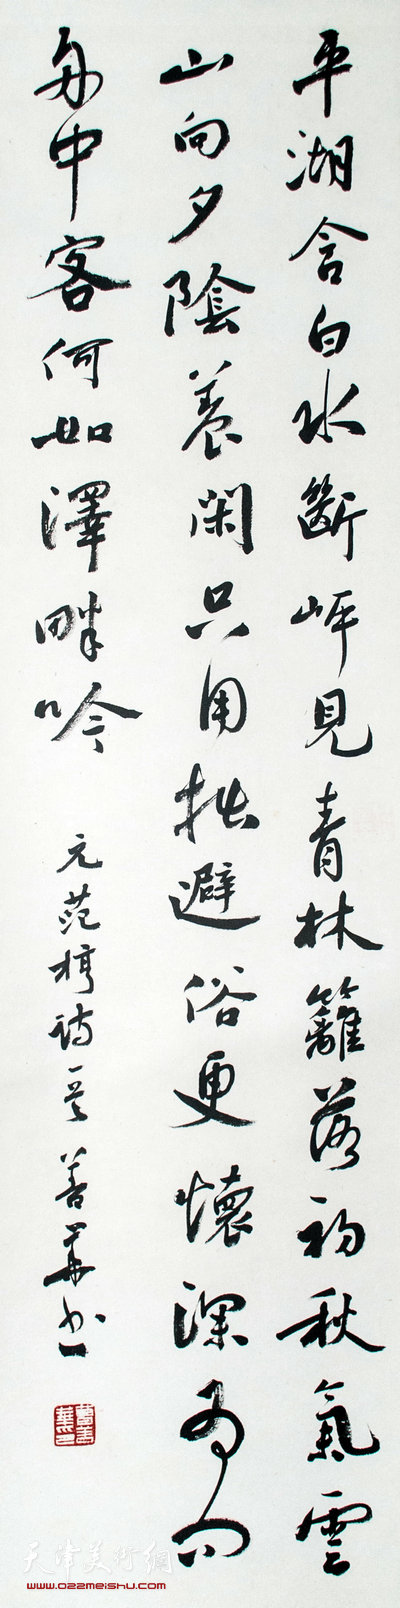 平湖含白水斷岸見青林籬落初秋氣雲
山向夕陰養閑只用拙避俗更懷深為問
舟中客何如澤畔吟
元范梈詩一首善華书
天津美術網
www.022meishu.com